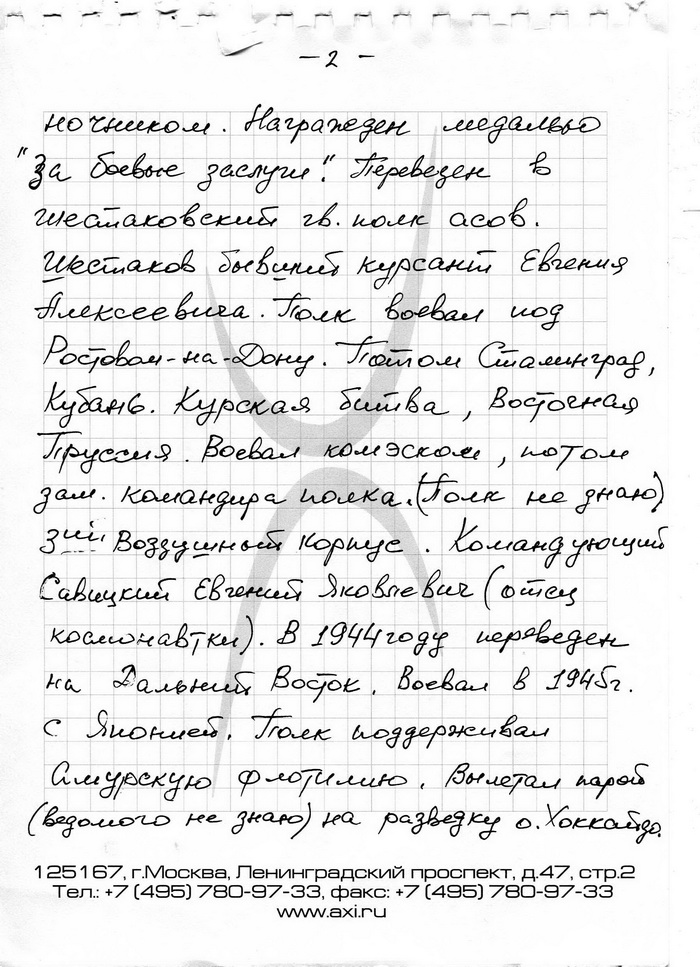 – 2 –
ночником. Награжден медалью
"За боевые заслуги". Переведен в
Шестаковский гв. полк асов.
Шестаков бывший курсант Евгения
Алексеевича. Полк воевал под
Ростовом-на-Дону. Потом Сталинград,
Кубань. Курская битва, Восточная
Пруссия. Воевал комэском, потом
зам. командира полка. (Полк не знаю)
3ий Воздушный корпус. Командующий
Савицкий Евгений Яковлевич (отец
космонавтки). В 1944 году переведен
на Дальний Восток. Воевал в 1945г.
с Японией. Полк поддерживал
Амурскую флотилию. Вылетал парой
(ведомого не знаю) на разведку о. Хоккайдо.
125167, г.Москва, Ленинградский проспект, д.47, стр.2
Тел.: +7 (495) 780-97-33, факс: +7 (495) 780-97-33
www.axi.ru